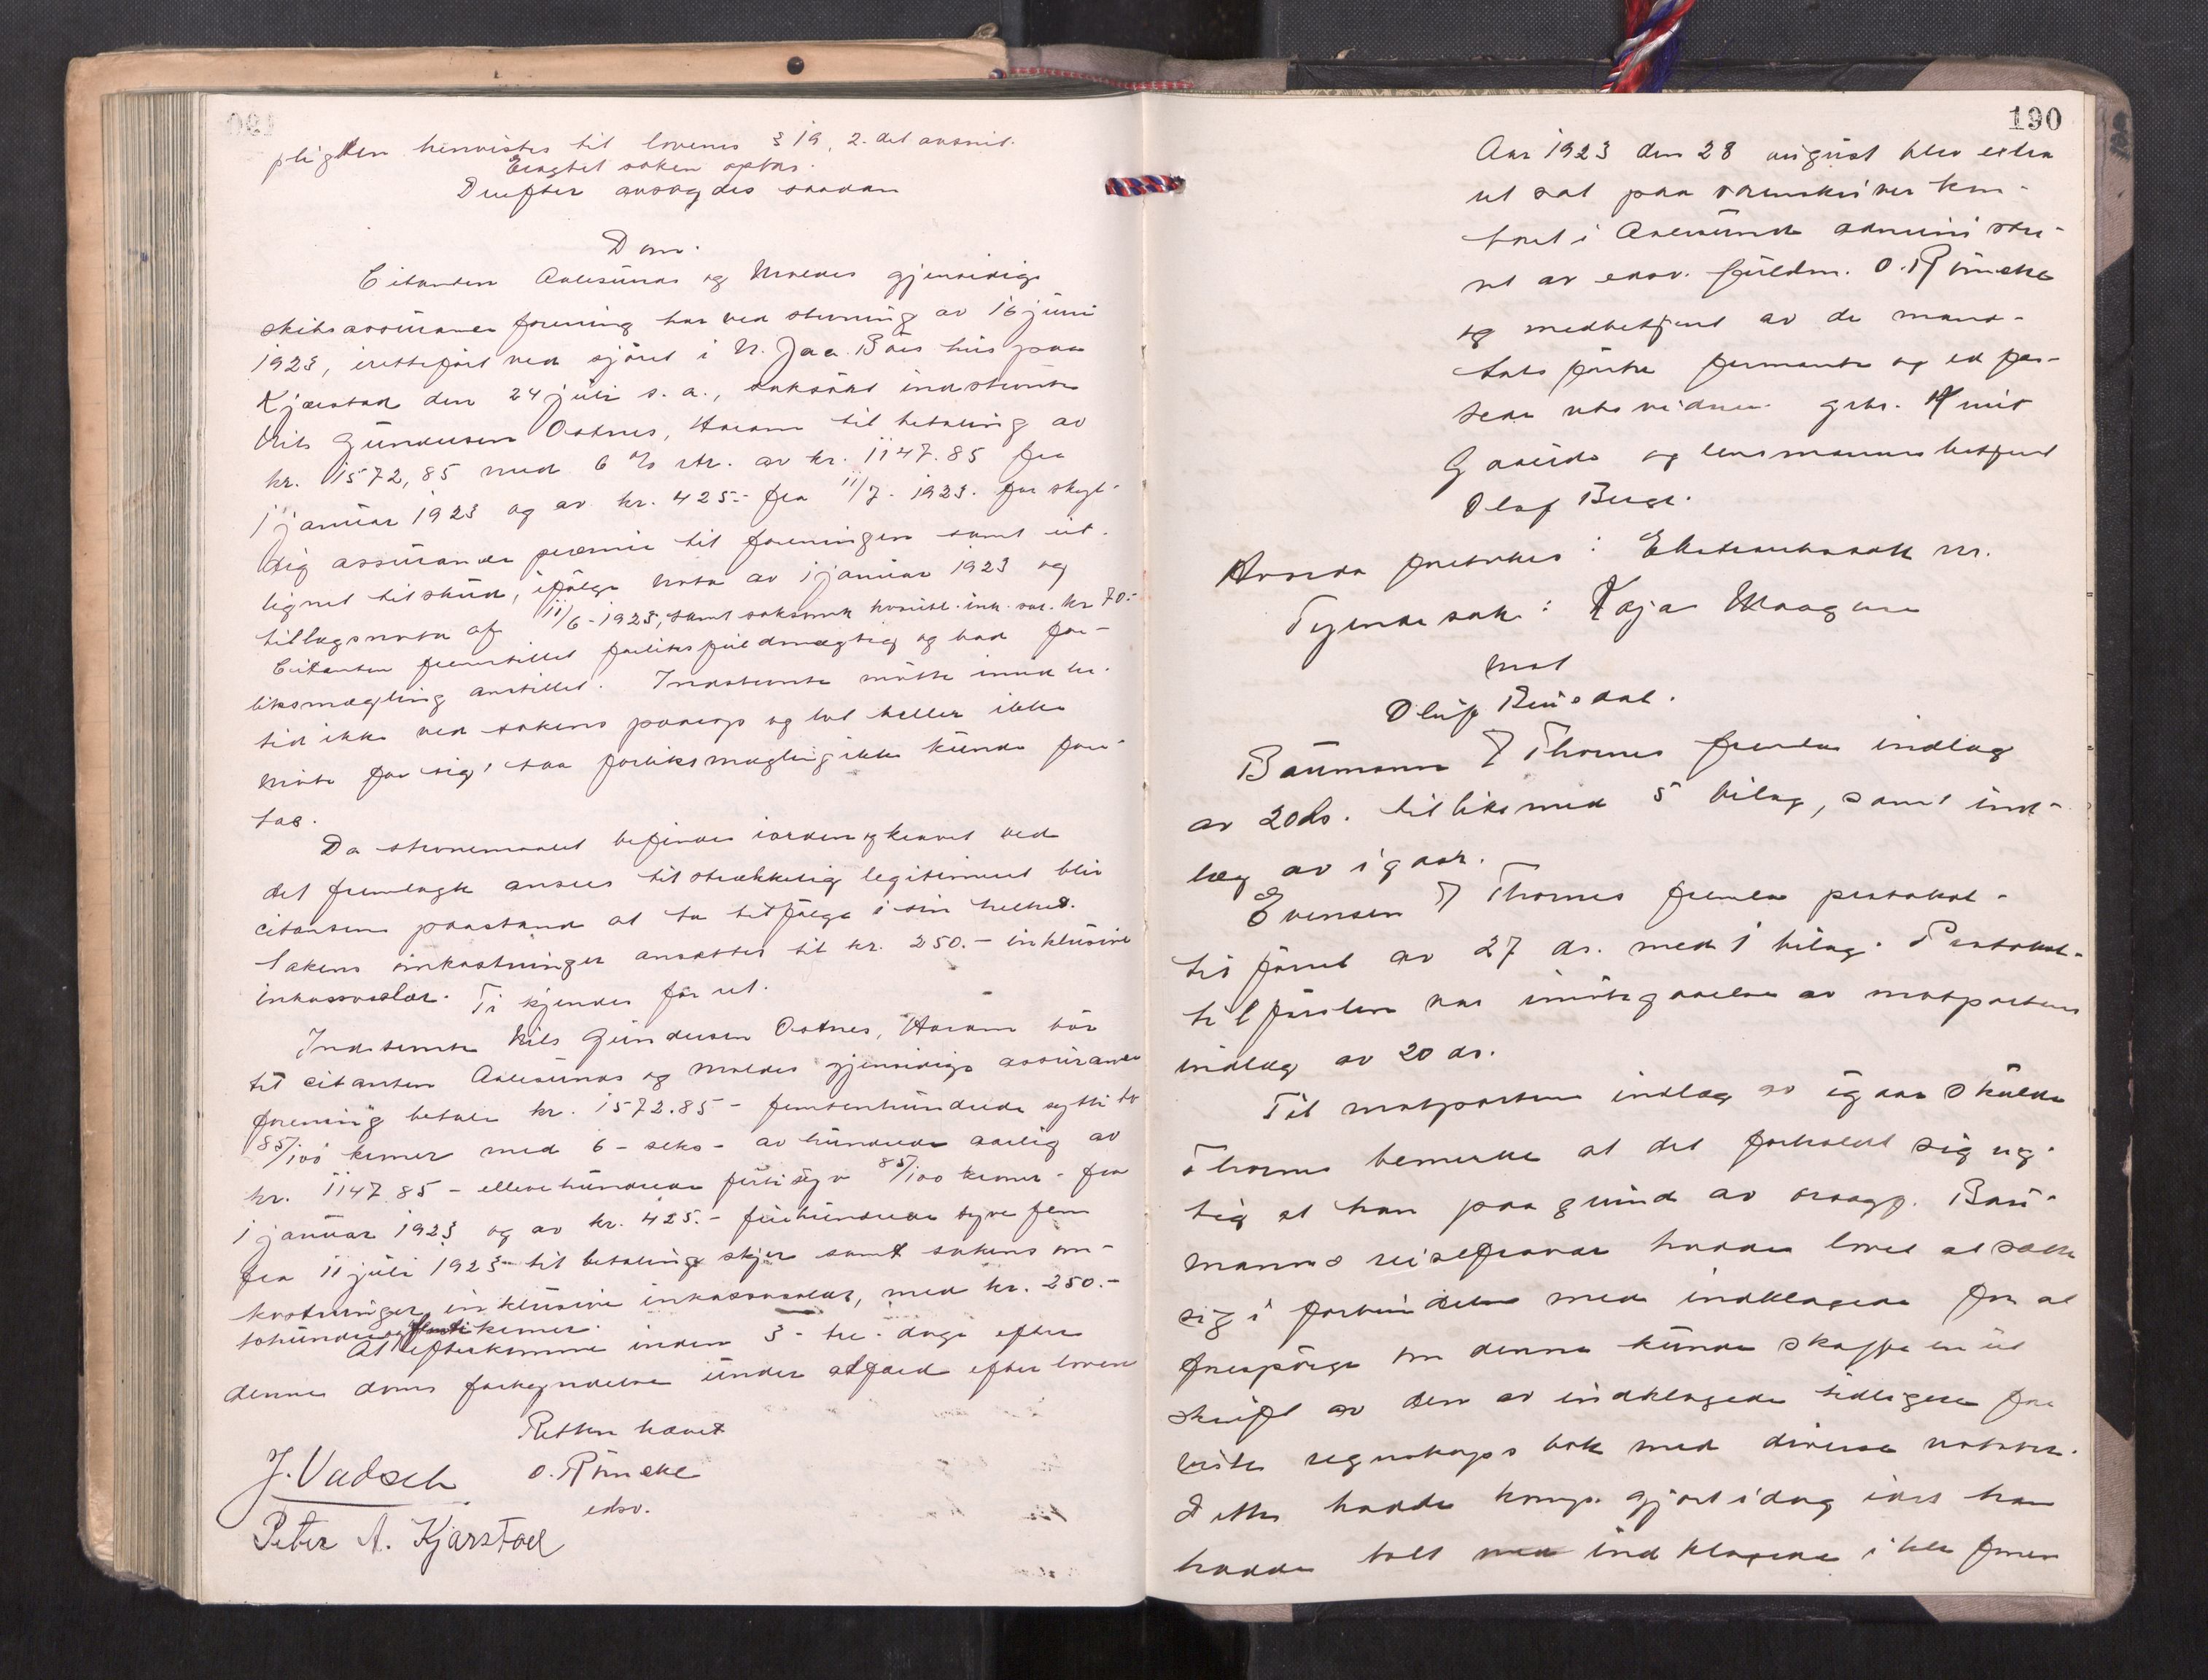 pligten henvistes til lovens § 19, 2. det avsnit.
Eragtet saken optas.
Derefter avsagdes saadan
Dom.
Citanten Aalesunds og Moldes gjensidige
skibsassurance forening har ved stevning av 16 juni
1923, irettefört ved sjöret i N. Jaa. Böes hus paa
Kjærstad den 24 juli s. a., saksökt indstevnte
Nils Gundersen Oxnes, Haram til betaling av
kr. 1572,85 med 6 % rtr. av kr. 1147.85 fra
1 januar 1923 og av kr. 425.- fra 11/7. 1923. for skyl-
dig assurance præmie til foreningen samt ut-
lignet tilskud, ifölge nota av 1 januar 1923 og
tillægsnota af 11/6-1923, samt saksomk. ink. sal. kr 70.-
Citanten fremstillet forliksfuldmægtig og bad for-
liksmægling anstillet. Indstevnte mötte imidler-
tid ikke ved sakens paarop og lot heller ikke
möte for sig, saa forliksmægling ikke kunde fore-
taes.
Da stevnemaalet befindes iorden og kravet ved
det fremlagte ansees tilstrækkelig legitimert blir
citantens paastand at ta tilfölge i sin helhet.
Sakens omkostninger ansættes til kr. 250.- inklusive
inkassosalær. Ti kjendes för ret.
Indstevnte Nils Gundersen Oxnes, Haram bör
til citanten Aalesunds og Moldes gjensidige assurance
forening betale kr. 1572.85 - femtenhundrede sytti to
85/100 kroner med 6 - seks - av hundrede aarlig av
kr. 1147.85 - ellevehundrede förti syv 85/100 kroner - fra
1 januar 1923 og av kr. 425.- firehundrede tyve fem
fra 11 juli 1923 til betaling skjer samt sakens om-
kostninger, inklusive inkassosalær, med kr. 250.-
tohundre og femti kroner.
At efterkomme inden 3 - tre - dage efter
denne doms forkyndelse under adfærd efter loven
Retten hævet
J. Vadseth O. Röneke
edsv.
Peter A. Kjærstad
190
Aar 1923 den 28 august blev extra
ret sat paa sorenskriver kon-
toret i Aalesund administre-
ret av edsv. fuldm. O. Röneke
og medbetjent av de mand-
tals förte fremmöte og ed for-
sede rets vidner grbr. Knut
Gaaseide og lensmannsbetjent
Olaf Berge.
Hvorda foretokes: Ekstraretssak nr.
Tyende sak: Kaja Maagerø
mot
Oluf Busdal.
Baumann / Thornes fremla indlæg
av 20 ds. tillikemed 5 bilag, samt ind-
læg av igaar.
Evensen / Thornes fremla protokol-
tilförsel av 27 ds. med 1 bilag. Protokol-
tilförslen var imötegaaelse av motpartens
indlæg av 20 ds.
Til motpartens indlæg av igaar skulde
Thornes bemerke at det forholdt sig rig-
tig at han paa grund av orsagf. Bau-
manns reisefravær hadde lovet at sætte
sig i forbindelse med indklagede for at
forespörge om denne kunde skaffe en ut
skrift av den av indklagede tidligere fore
viste regnskaps bok med diverse notater.
Dette hadde komp. gjort idag idet han
hadde talt med indklagede i tele fonen